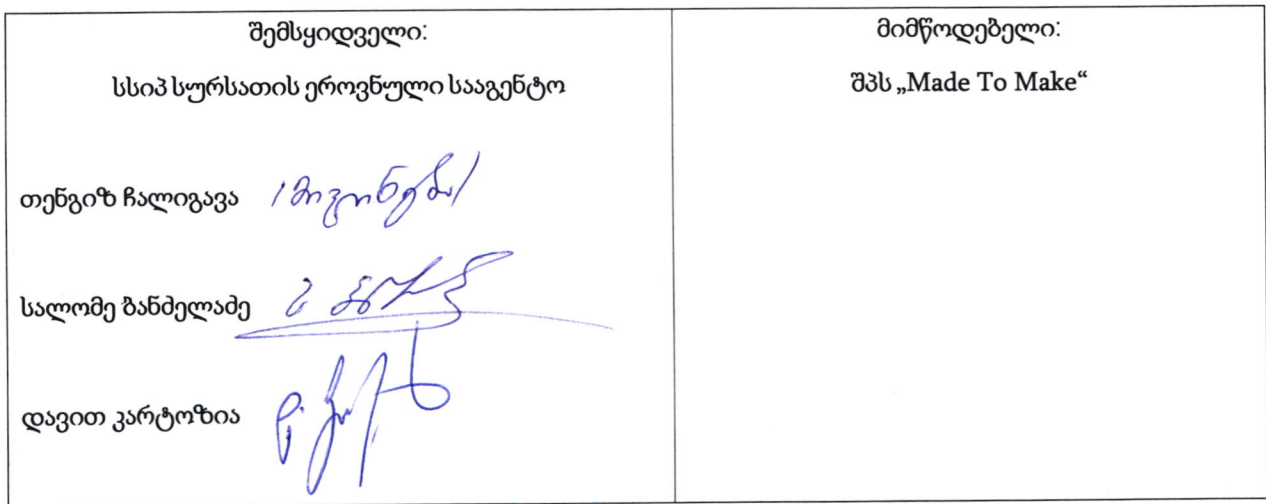 შემსყიდველი:
სსიპ სურსათის ეროვნული სააგენტო
თენგიზ ჩალიგავა /მივლინება/
სალომე ბანძელაძე
დავით კარტოზია
მიმწოდებელი:
შპს „Made To Make“